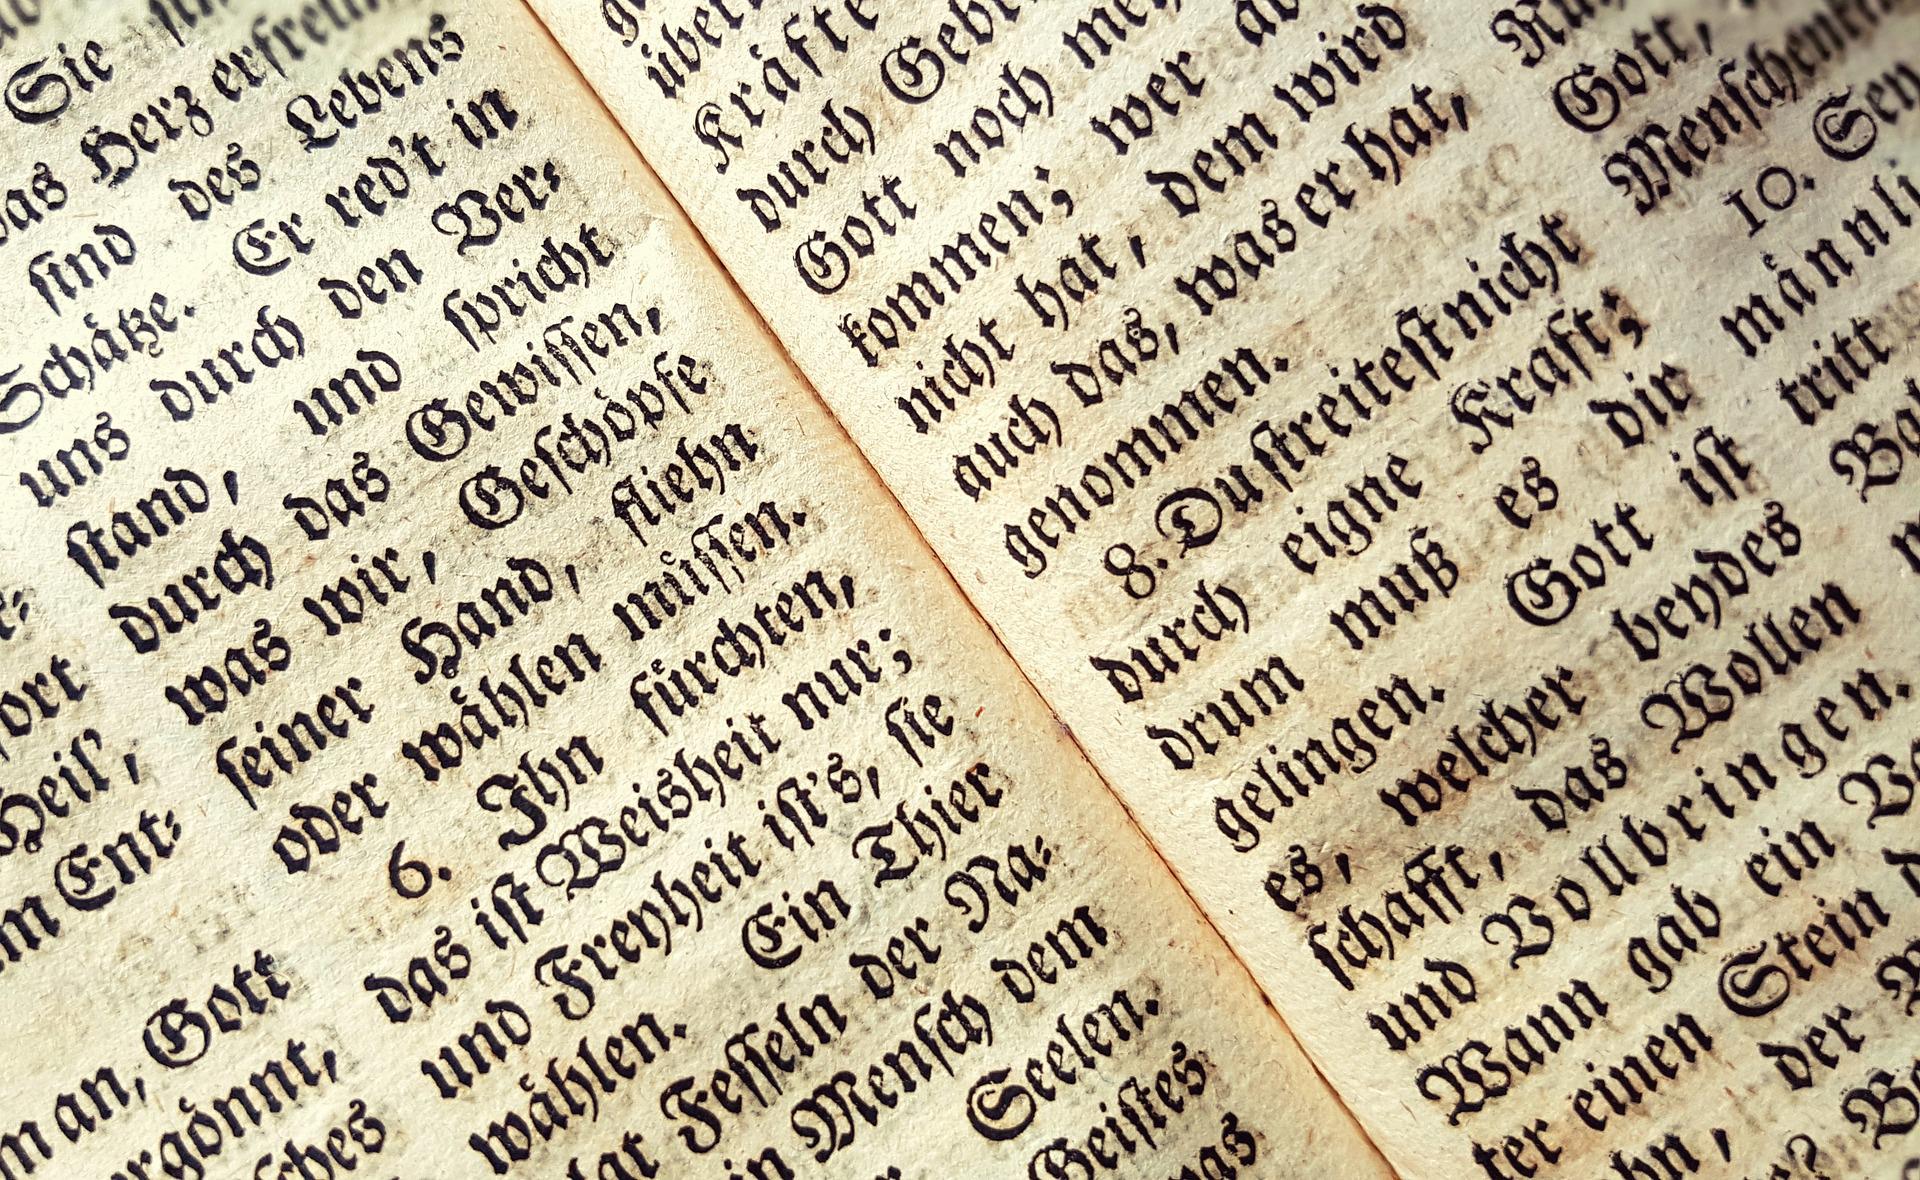 Heil',
Ent⸗
an, Gott
Sie
das Herz
ſind des Lebens
Schätze. Er red't in
uns durch den Ver⸗
ſtand, und ſpricht
durch das Gewiſſen,
was wir, Geſchöpfe
ſeiner Hand, fliehn
oder wählen müſſen.
6. Ihn fürchten,
das iſt Weisheit nur;
und Freyheit iſt's, ſie
wählen. Ein Thier
Feſſeln der Na⸗
Menſch dem
Seelen.
Geiſtes
Kräfte
durch
Gott noch
kommen; wer
nicht hat, dem wird
auch das, was er hat,
genommen.
8. Du ſtreiteſt nicht
durch eigne Kraft;
drum muß es dir
gelingen. Gott iſt
es, welcher beydes
ſchafft, das Wollen
und Vollbringen.
Wann gab ein
einen Stein
der
Gott,
10.
tritt